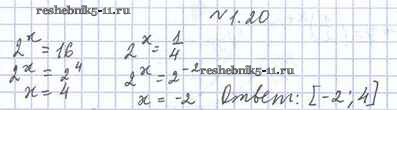 www.reshebnik5-11.ru
№1.20
2^x = 16
2^x = 2^4
x = 4
2^x = 1/4
2^x = 2^-2
x = -2
www.reshebnik5-11.ru
Ответ: [-2; 4]